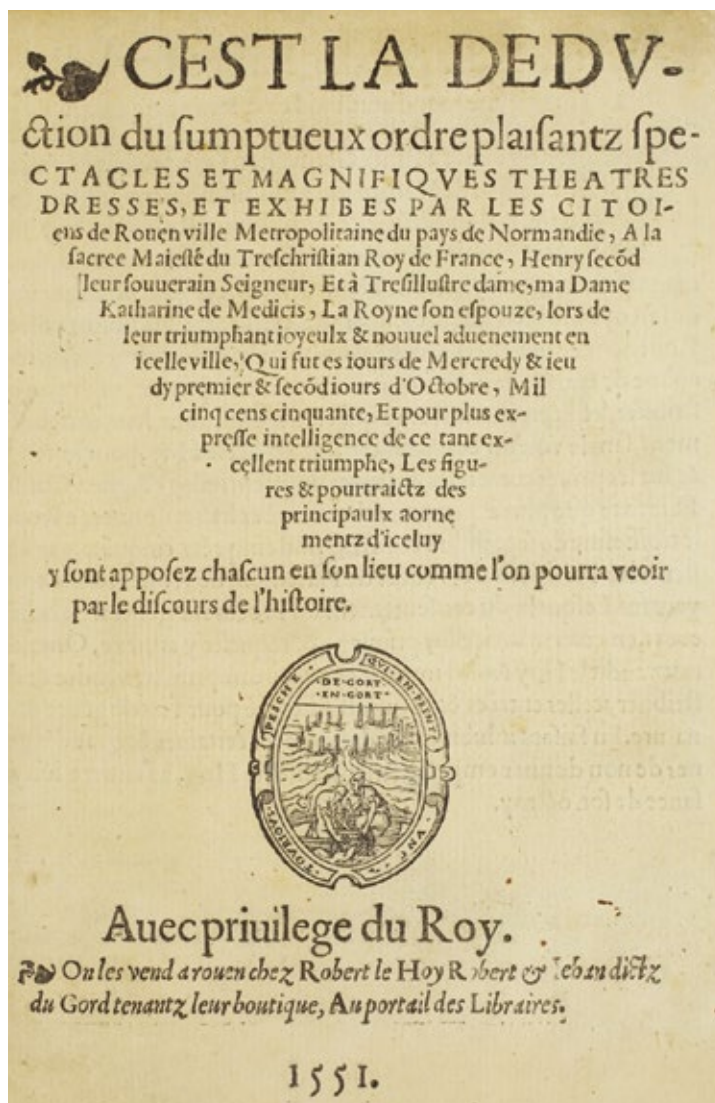 CEST LA DEDV-
ction du ſumptueux ordre plaiſantz ſpe-
CTACLES ET MAGNIFIQVES THEATRES
DRESSES, ET EXHIBES PAR LES CITOI-
ens de Rouen ville Metropolitaine du pays de Normandie, A la
ſacree Maieſté du Treſchriſtian Roy de France, Henry ſecõd
leur ſouuerain Seigneur, Et à Treſilluſtre dame, ma Dame
Katharine de Medicis, La Royne ſon eſpouze, lors de
leur triumphant ioyeulx & nouuel aduenement en
icelle ville, Qui fut es iours de Mercredy & ieu
dy premier & ſecõd iours d'Octobre, Mil
cinq cens cinquante, Et pour plus ex-
preſſe intelligence de ce tant ex-
cellent triumphe, Les figu-
res & pourtraictz des
principaulx aorne
mentz d'iceluy
y ſont appoſez chaſcun en ſon lieu comme l'on pourra veoir
par le diſcours de l'hiſtoire.
PESCHE QVI EN PRINT VNG
DE GORT
EN GORT
Auec priuilege du Roy.
On les vend a rouen chez Robert le Hoy Robert & Iehan dictz
du Gord tenantz leur boutique, Au portail des Libraires.
1551.